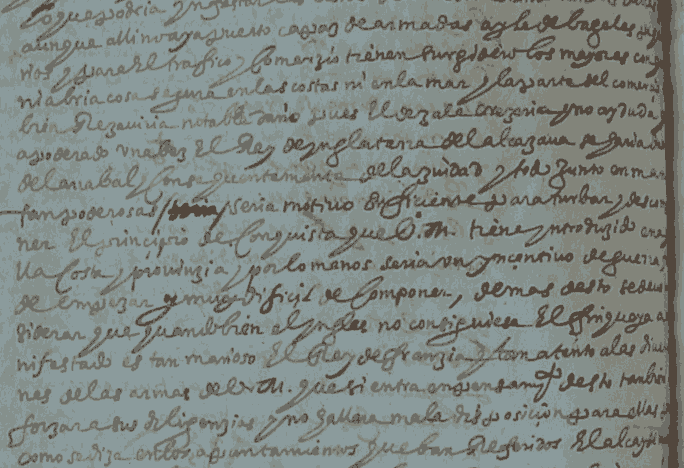 lo que podria ynfestar
aunque alli no aya puerto capaz de armadas ay le de bageles
rios y para El traffico y Comerzio tienen surgidero los mayores con
ni abria cosa segura en las costas ni en la mar y la parte del comerç
bien Rezaviria notable daño pues El de zale crezeria y no ay duda
apoderado una bez El Rey de ynglaterra del alcazava se haria du
del arrabal y Consequentemente de la ziudad y todo junto en man
tan poderosas seria motivo suficiente para turbar y descon
ner El principio de Conquista que V. M. tiene yntroduzido en a
lla Costa y provinzia y por lo menos seria un yncentivo de guerra
de empezar y muy dificil de Componer, demas desto se deve
siderar que quando bien el yngles no consiguiese El
nifestado es tan mañoso El Rey de franzia y tan atento a las diver
nes de las armas de V. M. que si entra en pensamto desto tanbien
forzara sus diligenzias y no hallara mala disposiçion para ellas
como se dize en los apuntamientos que ban Referidos El alcayde